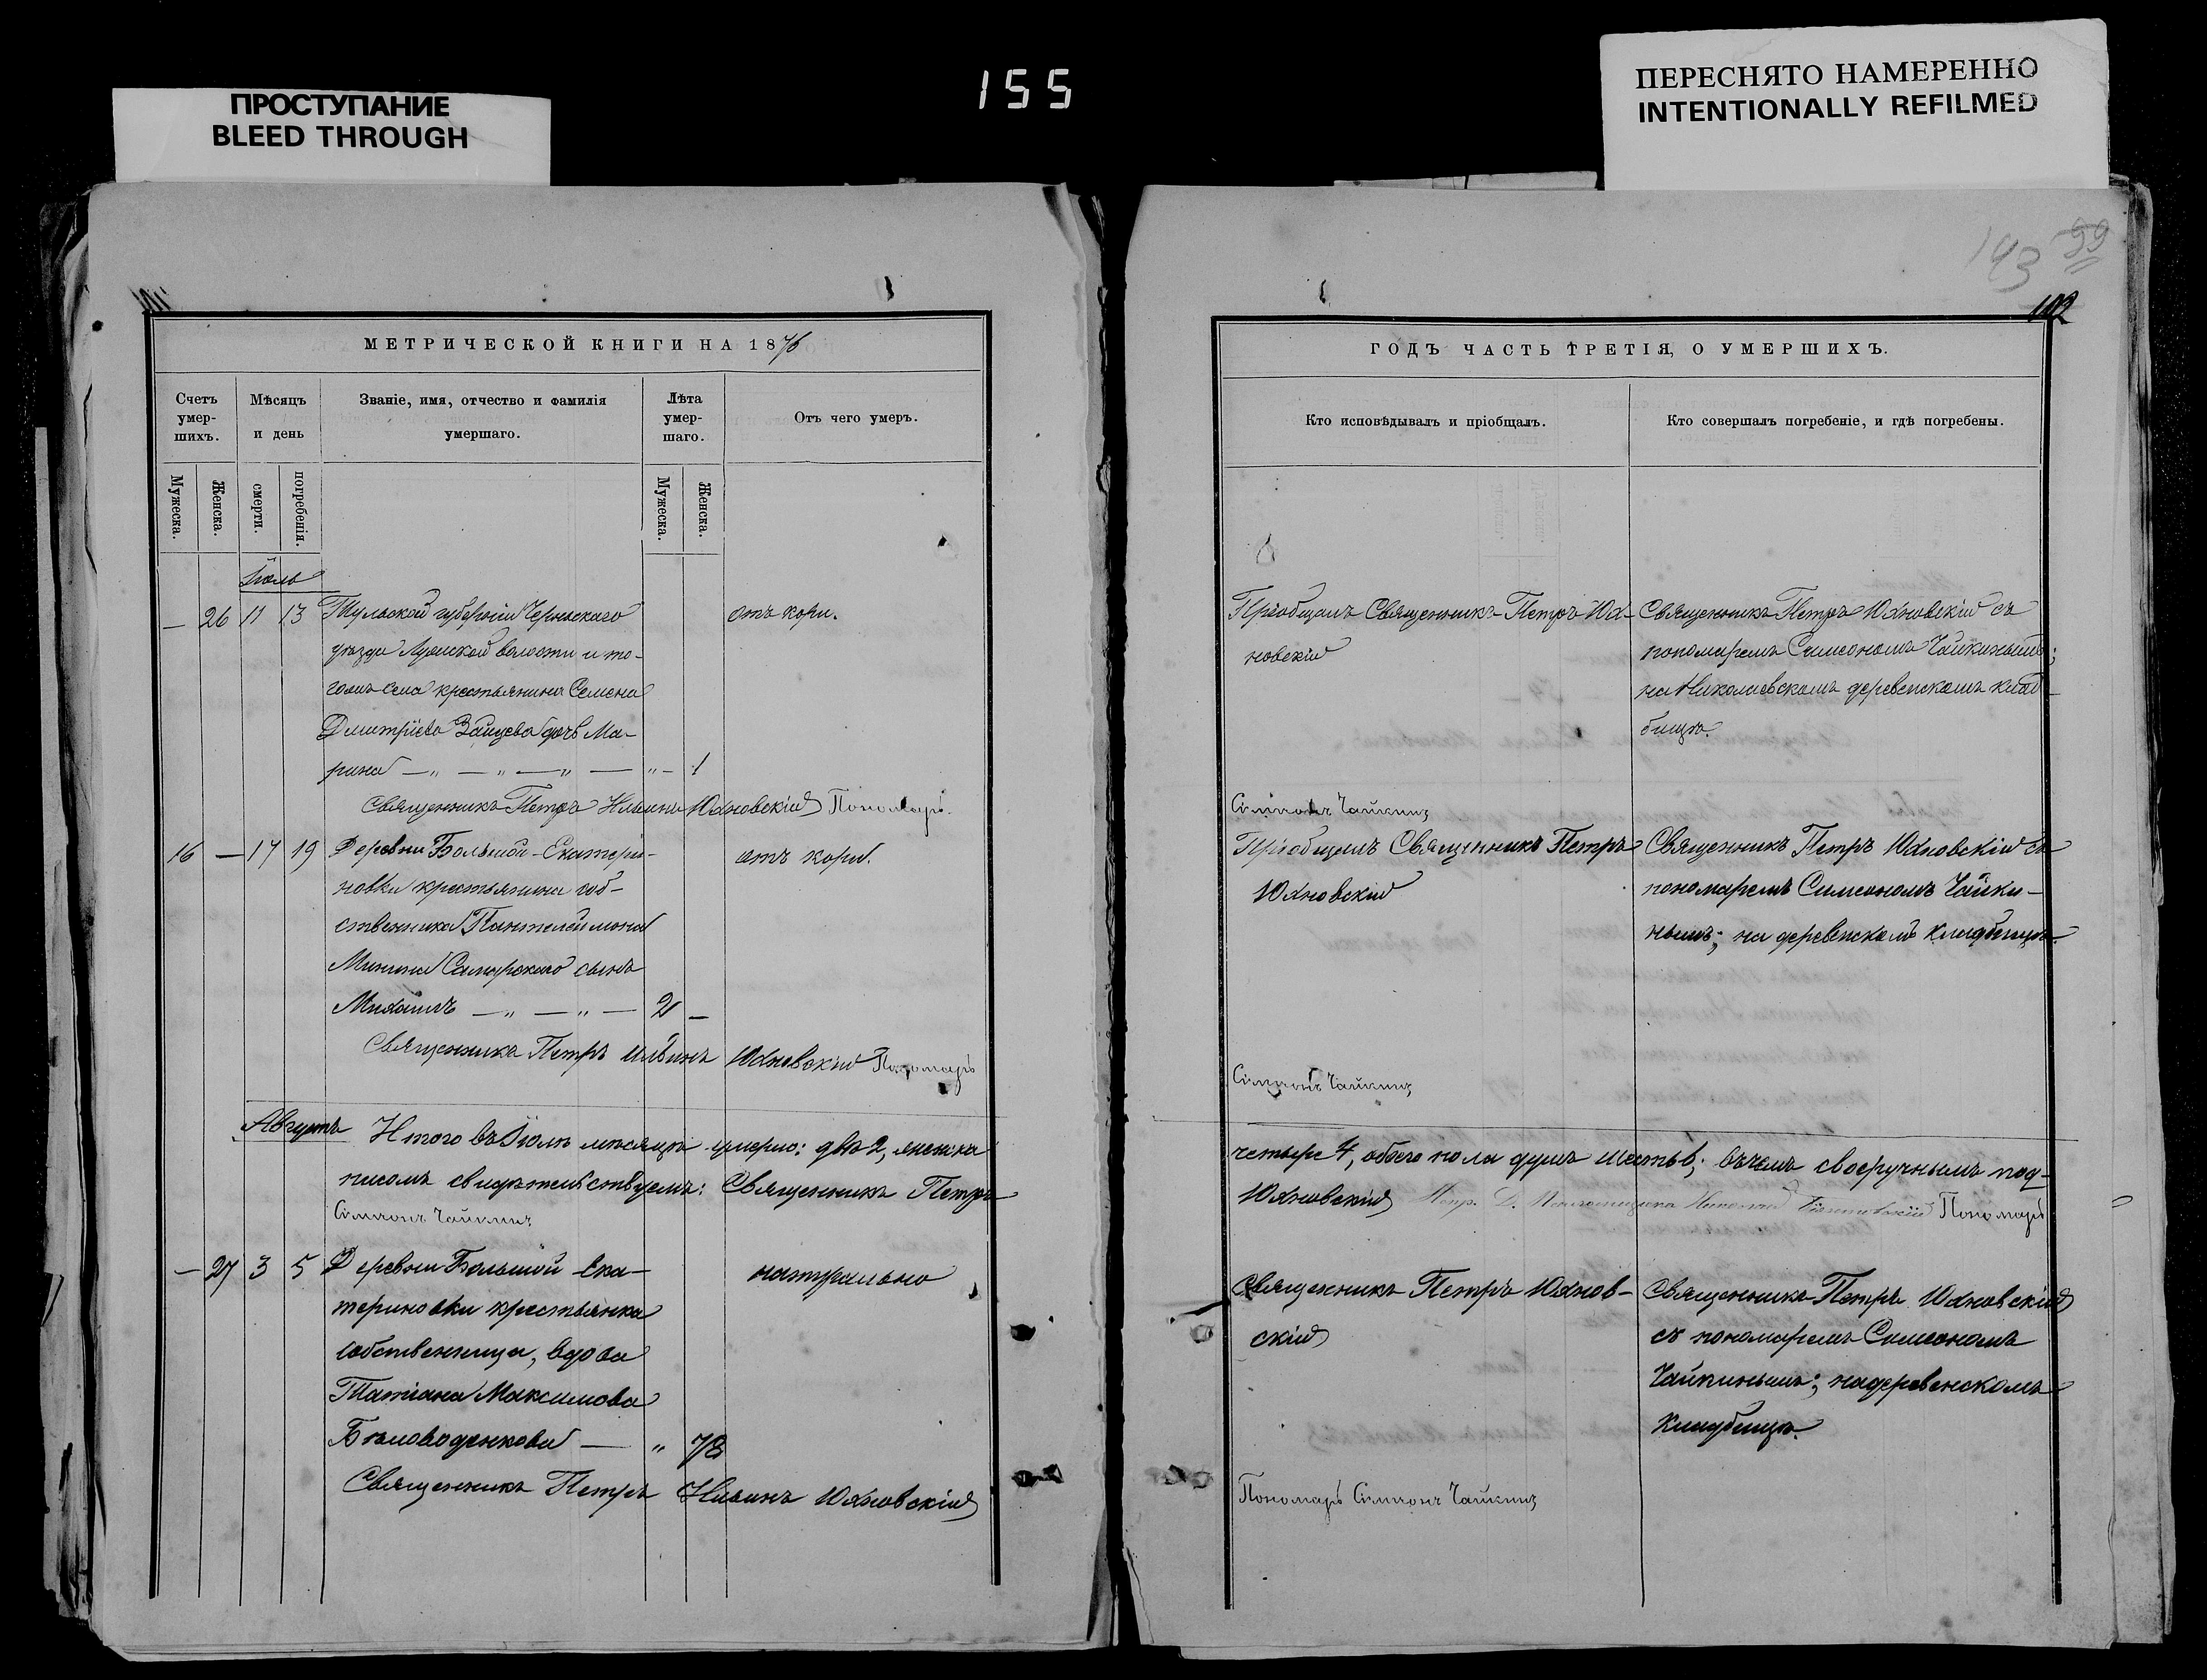 ПРОСТУПАНИЕ
BLEED THROUGH
155
ПЕРЕСНЯТО НАМЕРЕННО
INTENTIONALLY REFILMED
МЕТРИЧЕСКОЙ КНИГИ НА 1876
Счетъ умер-шихъ.
Мѣсяцъ и день
Званіе, имя, отчество и фамилія умершаго.
Лѣта умер-шаго.
Отъ чего умеръ.
Мужеска.
Женска.
смерти.
погребенія.
Мужеска.
Женска.
Іюль
— 26 11 13 Тульской губерніи Чернскаго
уѣзда Лужской волости и то-
гожъ села крестьянина Семена
Дмитріева Зайцева дочь Ма-
рина — „ — „ — „ — „ — 1
отъ кори.
Священникъ Петръ Ильинъ Юхновскій Пономарь
16 — 17 19 Деревни Большой-Екатери-
новки крестьянина соб-
ственника Пантелеймона
Минина Самурскаго сынъ
Михаилъ — „ — „ — 2 —
отъ кори.
Священникъ Петръ Ильинъ Юхновскій Пономарь
Августъ
Итого въ Іюлѣ мѣсяцѣ умерло: два 2, женска
писомъ свидѣтельствуемъ: Священникъ Петръ
Сімеонъ Чайкинъ
— 27 3 5 Деревни Большой Ека-
териновки крестьянка
собственница, вдова
Татіана Максимова
Бѣловоденкова — „ 78
натурально
Священникъ Петръ Ильинъ Юхновскій
143 99
102
ГОДЪ ЧАСТЬ ТРЕТІЯ, О УМЕРШИХЪ.
Кто исповѣдывалъ и пріобщалъ.
Кто совершалъ погребеніе, и гдѣ погребены.
Пріобщалъ Священникъ Петръ Юх-
новскій
Священникъ Петръ Юхновскій съ
пономаремъ Симеономъ Чайкинымъ;
на Николаевскомъ деревенскомъ клад-
бищѣ.
Сімеонъ Чайкинъ
Пріобщалъ Священникъ Петръ
Юхновскій
Священникъ Петръ Юхновскій съ
пономаремъ Симеономъ Чайки-
нымъ; на деревенскомъ кладбищѣ.
Сімеонъ Чайкинъ
четыре 4, обоего пола душъ шесть 6; въ чемъ своеручнымъ под-
Юхновскій Пономарь
Священникъ Петръ Юхнов-
скій
Священникъ Петръ Юхновскій
съ пономаремъ Симеономъ
Чайкинымъ; на деревенскомъ
кладбищѣ.
Пономарь Сімеонъ Чайкинъ